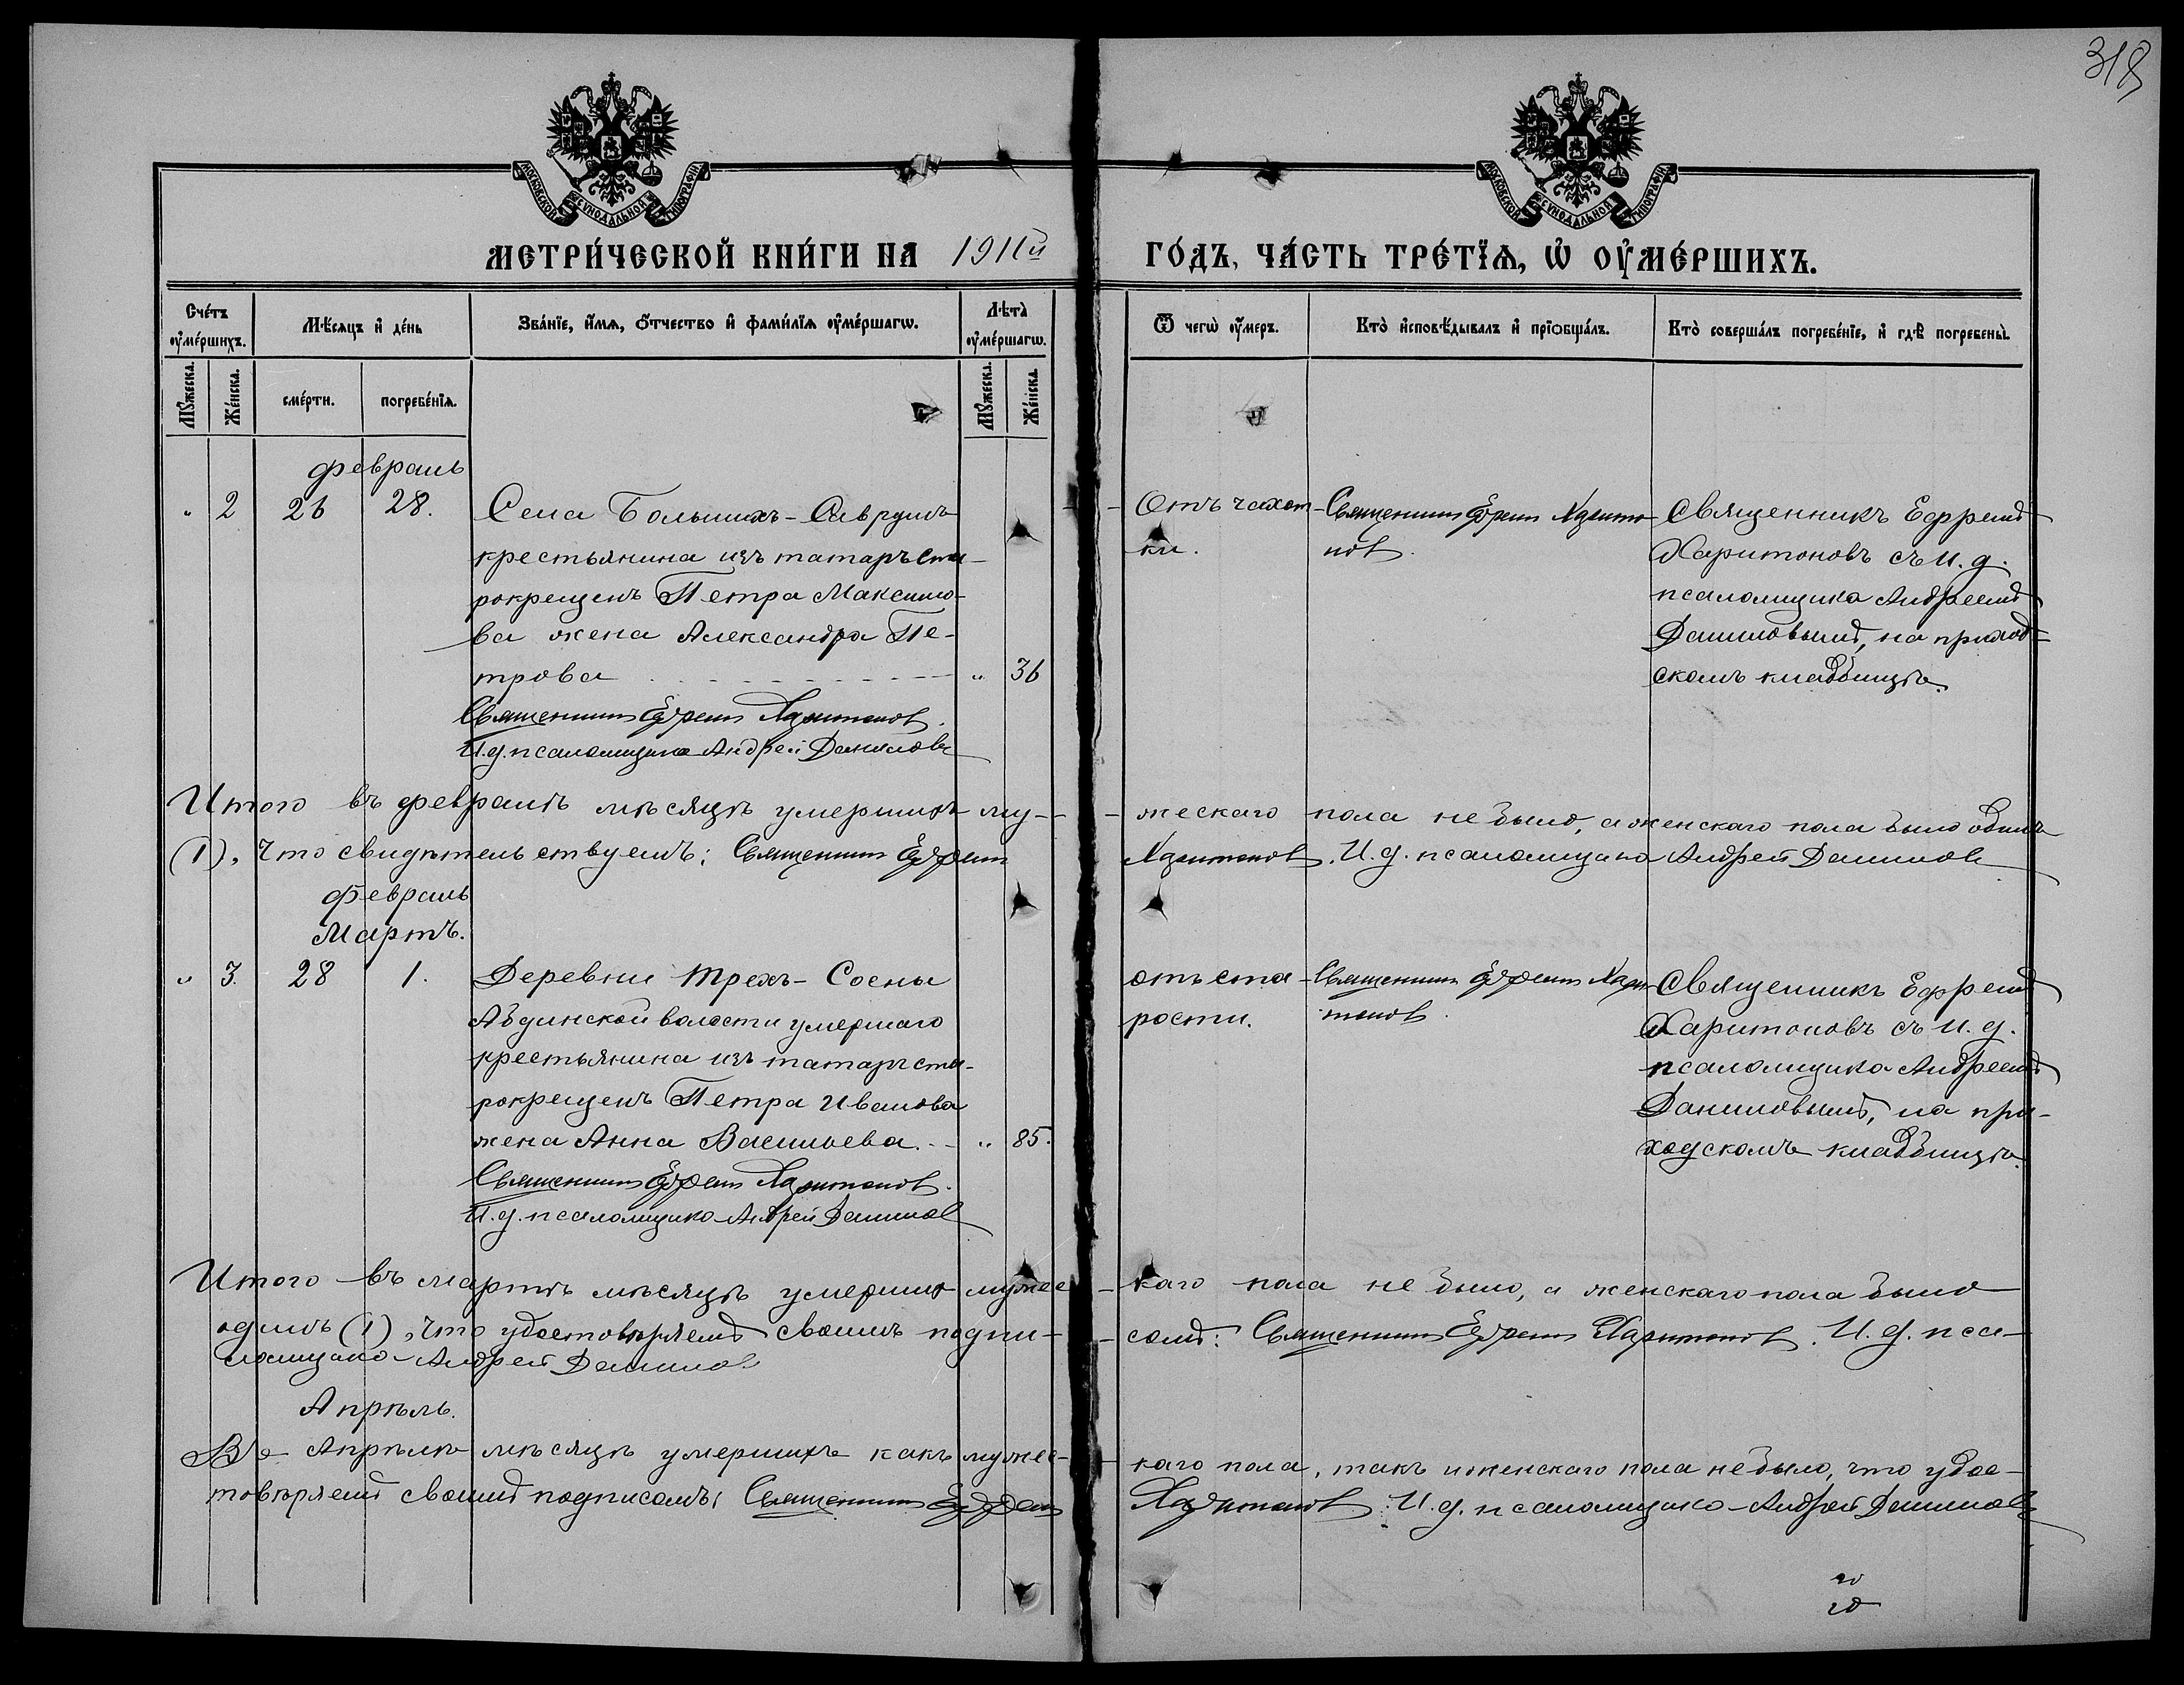 318
МОСКОВСКОЙ СѴНОДАЛЬНОЙ ТИПОГРАФІИ
МОСКОВСКОЙ СѴНОДАЛЬНОЙ ТИПОГРАФІИ
МЕТРИ́ЧЕСКОЙ КНИ́ГИ НА 1911й ГО́ДЪ, ЧА́СТЬ ТРЕ́ТЇѦ, Ѡ҆ ОУ҆МЕ́РШИХЪ.
Сче́тъ оу҆ме́ршихъ.
Мѣ́сяцъ и҆ де́нь
Зва́нїе, и҆́мѧ, ѻ҆́тчество и҆ фами́лїѧ оу҆ме́ршагѡ.
Лѣ́та оу҆ме́ршагѡ.
Ѿ чегѡ̀ оу҆́меръ.
Кто̀ и҆сповѣ́дывалъ и҆ прїѻбща́лъ.
Кто̀ соверша́лъ погребе́нїе, и҆ гдѣ̀ погребены̀.
Мꙋ́жеска.
Же́нска.
сме́рти.
погребе́нїѧ.
Мꙋ́жеска.
Же́нска.
февраль
" 2 26 28.
Села Большихъ-Саврушъ
крестьянина изъ татаръ ста-
рокрещенъ Петра Максимо-
ва жена Александра Пе-
трова " 36
Священникъ Ефремъ Харитоновъ.
И.д. псаломщика Андрей Даниловъ
Отъ чахот-
ки.
Священникъ Ефремъ Харито-
новъ.
Священникъ Ефремъ
Харитоновъ съ и.д.
псаломщика Андреемъ
Даниловымъ, на приход-
скомъ кладбищѣ.
Итого въ февралѣ мѣсяцѣ умершихъ му- жескаго пола не было, а женскаго пола было одинъ
(1), Что свидѣтельствуемъ: Священникъ Ефремъ Харитоновъ. И.д. псаломщика Андрей Даниловъ
Февраль
Мартъ.
" 3. 28 1.
Деревни Трехъ-Сосны
Абдинской волости умершаго
крестьянина изъ татаръ ста-
рокрещенъ Петра Иванова
жена Анна Васильева. " 85.
Священникъ Ефремъ Харитоновъ.
И.д. псаломщика Андрей Даниловъ
отъ ста-
рости.
Священникъ Ефремъ Хари-
тоновъ.
Священникъ Ефремъ
Харитоновъ съ и.д.
псаломщика Андреемъ
Даниловымъ, на при-
ходскомъ кладбищѣ.
Итого въ мартѣ мѣсяцѣ умершихъ мужес- каго пола не было, а женскаго пола было
одинъ (1), Что удостовѣряемъ своимъ подпи- сомъ: Священникъ Ефремъ Харитоновъ. И.д. пса-
ломщика Андрей Даниловъ
Апрѣль.
Въ Апрѣлѣ мѣсяцѣ умершихъ какъ мужес- каго пола, такъ и женскаго пола не было, что удос-
товѣряемъ своимъ подписомъ: Священникъ Ефремъ Харитоновъ. И.д. псаломщика Андрей Даниловъ